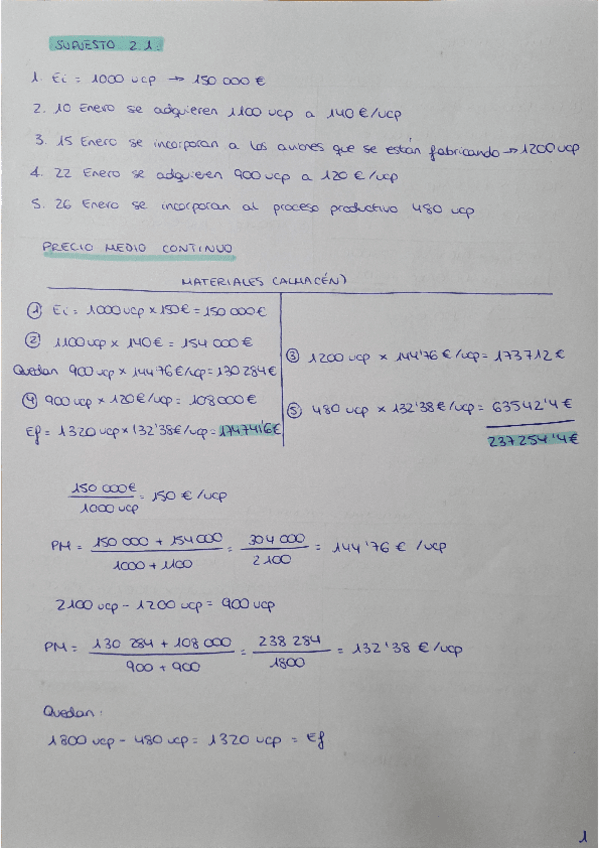 SUPUESTO 2.1.
1. Ei = 1000 ucp → 150 000 €
2. 10 Enero se adquieren 1100 ucp a 140 €/ucp
3. 15 Enero se incorporan a los aviones que se están fabricando → 1200 ucp
4. 22 Enero se adquieren 900 ucp a 120 €/ucp
5. 26 Enero se incorporan al proceso productivo 480 ucp
PRECIO MEDIO CONTINUO
MATERIALES (ALMACÉN)
① Ei = 1000 ucp × 150€ = 150 000€
② 1100 ucp × 140€ = 154 000€
Quedan 900 ucp × 144'76 €/ucp = 130 284€
④ 900 ucp × 120€/ucp = 108 000€
Ef = 1320 ucp × 132'38€/ucp = 174741'6€
③ 1200 ucp × 144'76 €/ucp = 173 712 €
⑤ 480 ucp × 132'38 €/ucp = 63542'4 €
237 254'4 €
150 000€ / 1000 ucp = 150 €/ucp
PM = 150 000 + 154 000 / 1000 + 1100 = 304 000 / 2100 = 144'76 € /ucp
2100 ucp - 1200 ucp = 900 ucp
PM = 130 284 + 108 000 / 900 + 900 = 238 284 / 1800 = 132'38 €/ucp
Quedan:
1800 ucp - 480 ucp = 1320 ucp = Ef
1